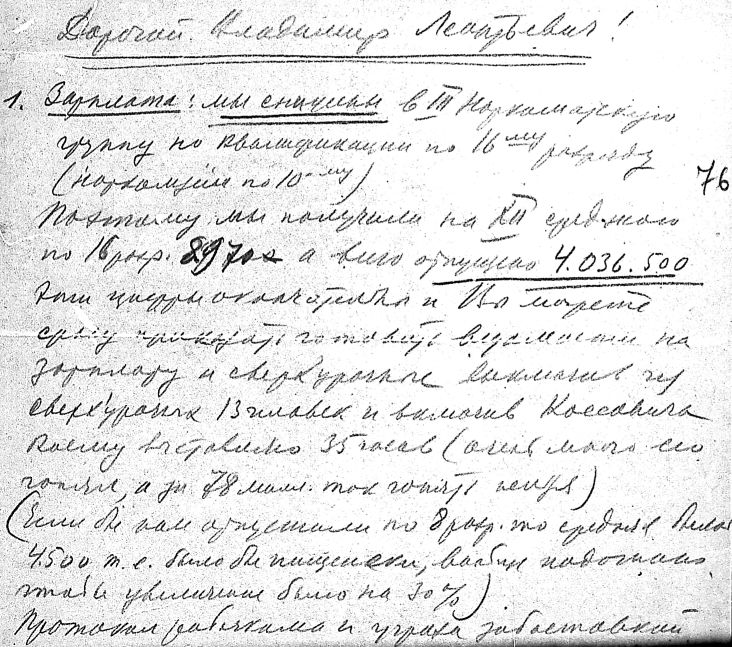 Дорогой Владимир Леонтьевич!
1. Зарплата: мы в III
группу по квалификации по 16му разряду
(по 10му)
76
Поэтому мы получили на XII среднего
по 16 разр. 8970 а всего отпущено 4.036.500
Эти цифры окончательны и Вы можете
сразу приказать готовить ведомости на
зарплату и сверхурочные включив из
сверхурочных 13 человек и включив Коссовича
коему 35 часов (очень много его
а за 78 милл. так гонять нельзя)
(Если бы нам отпустили по 8 разр. то средняя
4.500 т.е. было бы нищенски, вообще
чтобы увеличение было на 30%)
Протокол рабочкома и угроза забастовкой